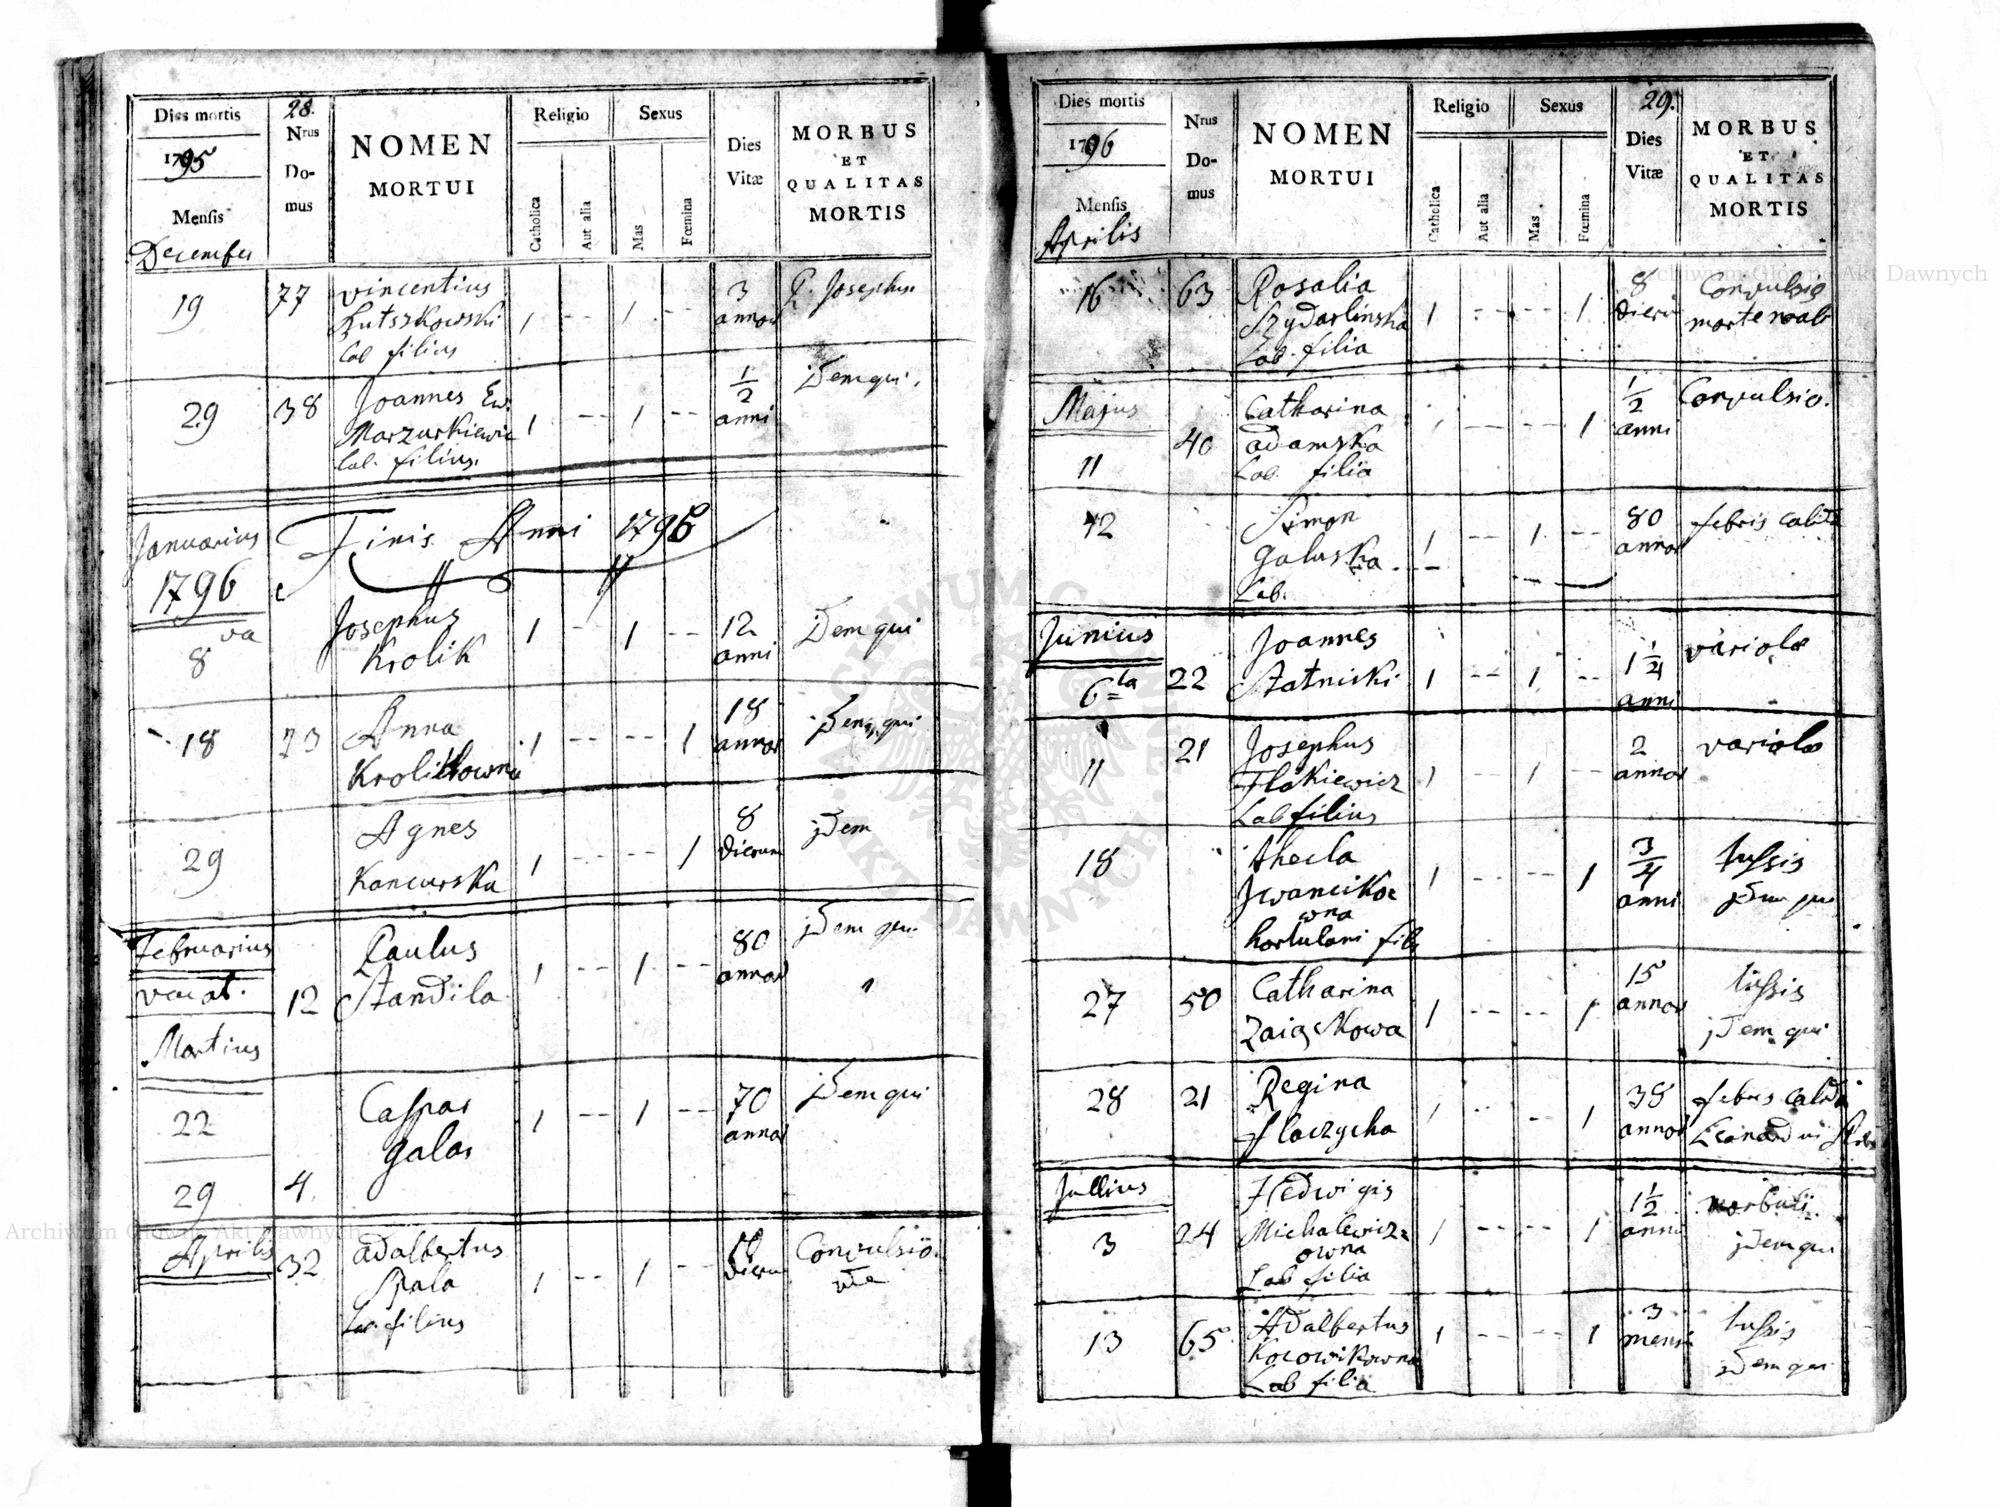 Dies mortis
1795
Mensis
December
28.
Nrus
Do-
mus
NOMEN
MORTUI
Religio
Catholica
Aut alia
Sexus
Mas
Fœmina
Dies
Vitæ
MORBUS
ET
QUALITAS
MORTIS
19 77 Vincentius 3 P. Josephus
Kutszkowski 1 -- 1 -- annor
Lab filius
29 38 Joannes Ew. 1/2 Idem qui
Marzurkiewic 1 -- 1 -- anni
Lab. filius.
Januarius Finis Anni 1796
1796
8va Josephus 1 -- 1 -- 12 Idem qui
Krolik anni
18 73 Anna 18 Idem qui
Krolikowna 1 -- -- 1 annor
29 Agnes 8 jdem
Koncurska 1 -- -- 1 dierum
Februarius Paulus 80 jdem qui
vacat. 12 Standila 1 -- 1 -- annor
Martius
22 Caspar 1 -- 1 -- 70 jdem qui
Galas annor
29 4.
Aprilis 32 Adalbertus Convulsio
Spala 1 -- 1 -- dieru
Lab. filius
Dies mortis
1796
Mensis
Aprilis
Nrus
Do-
mus
NOMEN
MORTUI
Religio
Catholica
Aut alia
Sexus
Mas
Fœmina
29.
Dies
Vitæ
MORBUS
ET
QUALITAS
MORTIS
16 63 Rosalia 8 Convulsio
Szydarlinska 1 -- -- 1 dieru
Lab. filia
Majus Catharina 1/2 Convulsio.
40 Adamska 1 -- -- 1 anni
11 Lab. filia
12 Simon 80 febris calida
Galuska 1 -- 1 -- annor
Lab.
Junius Joannes variola
6ta 22 Statniski 1 -- 1 -- 1 1/4
anni
21 Josephus 2 variola
11 Flakiewicz 1 -- 1 -- annor
Lab filius
18 Thecla 3/4 tussis
Jwanciko 1 -- -- 1 anni jdem qui
wna
hortulani fili
27 50 Catharina 15 tussis
Zaiączkowa 1 -- -- 1 annor jdem qui
28 21 Regina 38 febris calida
Flaczycha 1 -- 1 annor
Jullius Hedwigis 1 1/2 morbuli
3 24 Michalewicz= 1 -- -- 1 anni jdem qui
owna
Lab filia
13 65 Adalbertus 1 -- -- 1 3 tussis
Kocowikowna mensi jdem qui
Lab filia
Archiwum Główne Akt Dawnych
Archiwum Główne Akt Dawnych
ARCHIWUM GŁÓWNE
AKT DAWNYCH